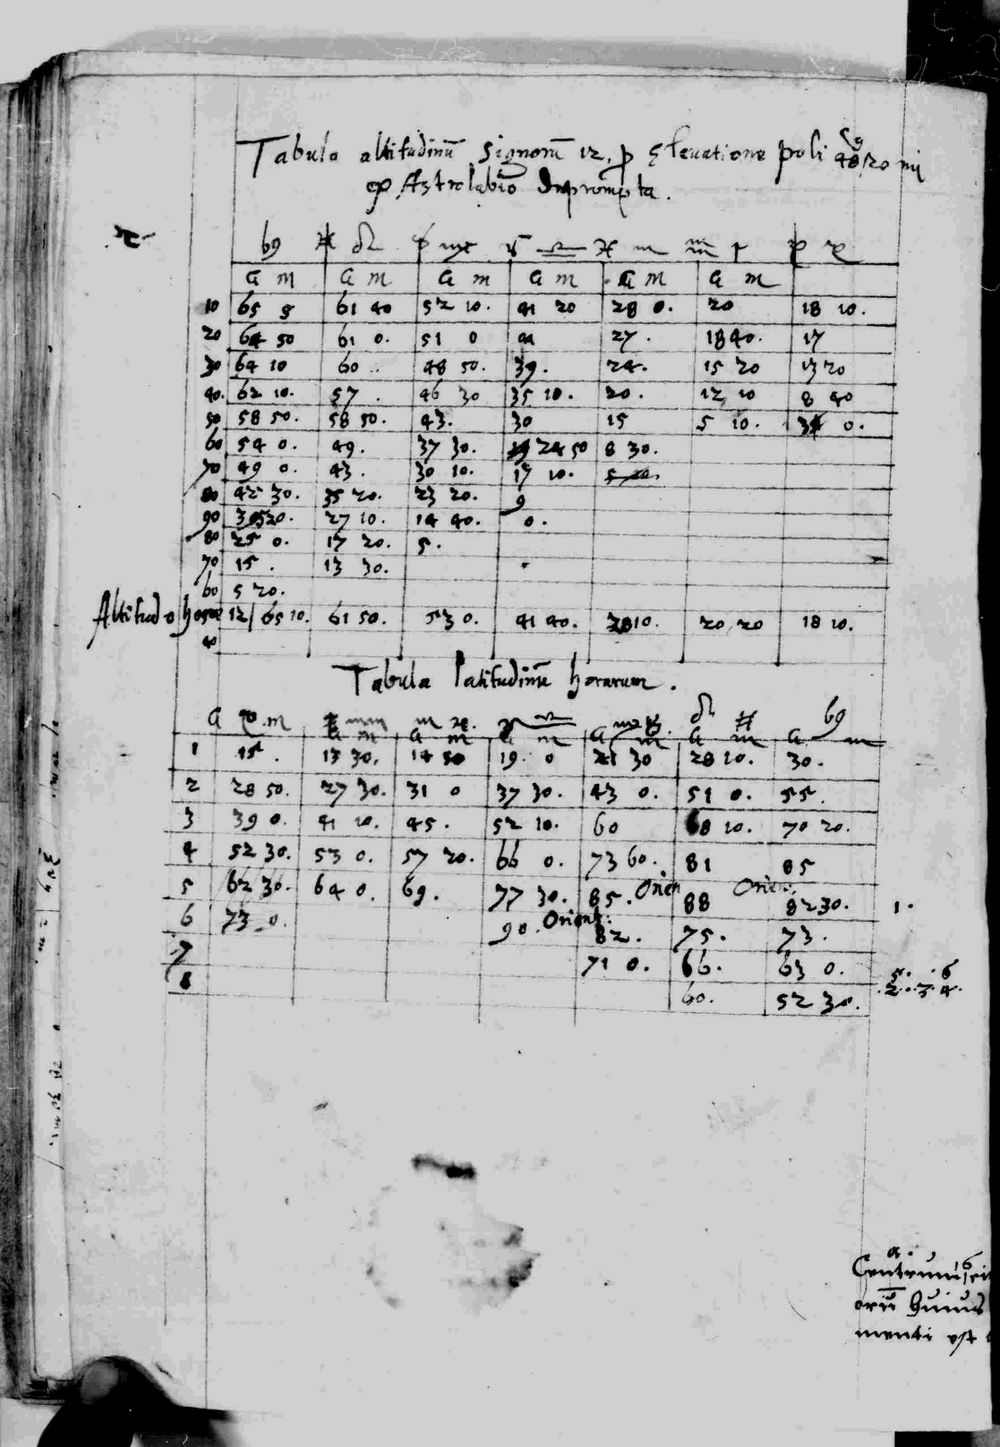 Tabula altitudinũ Signorũ 12. p Elevatione poli 48/20 mi
ex Astrolabio Deprompta.
♋ ♊ ♌ ♉ ♍ ♈ ♎ ♓ ♏ ♒ ♐ ♑
G M G M G M G M G M G M
10 65 5 61 40 52 10. 41 20 28 0. 20 18 10.
20 64 50 61 0. 51 0 27. 18 40. 17
30 64 10 60 48 50. 39. 24. 15 20 13 20
40. 62 10. 57. 46 30 35 10. 20. 12 10 8 40
50 58 50. 58 50. 43. 30 15 5 10. 0.
60 54 0. 49. 37 30. 24 50 8 30.
70 49 0. 43. 30 10. 17 10.
80 42 30. 35 20. 23 20. 9
90 27 10. 14 40. 0.
80 25 0. 17 20. 5.
70 15. 13 30.
60 5 20.
Altitudo horae 12 / 65 10. 61 50. 53 0. 41 40. 28 10. 20 20 18 10.
40
Tabula latitudinũ horarum.
G M G M G M G M G M G M G M
1 15. 13 30. 14 30 19. 0 21 30 28 10. 30.
2 28 50. 27 30. 31 0 37 30. 43 0. 51 0. 55.
3 39 0. 41 10. 45. 52 10. 60 68 10. 70 20.
4 52 30. 53 0. 57 20. 66 0. 73 60. 81 85
5 62 30. 64 0. 69. 77 30. 85. Orien 88 Orien. 82 30. 1.
6 73 0. 90. Orient. 82. 75. 73.
7 71 0. 66. 63 0.
8 60. 52 30.
5. . 6
.2..3 4.
a.
Centrum
orũ huius
menti est